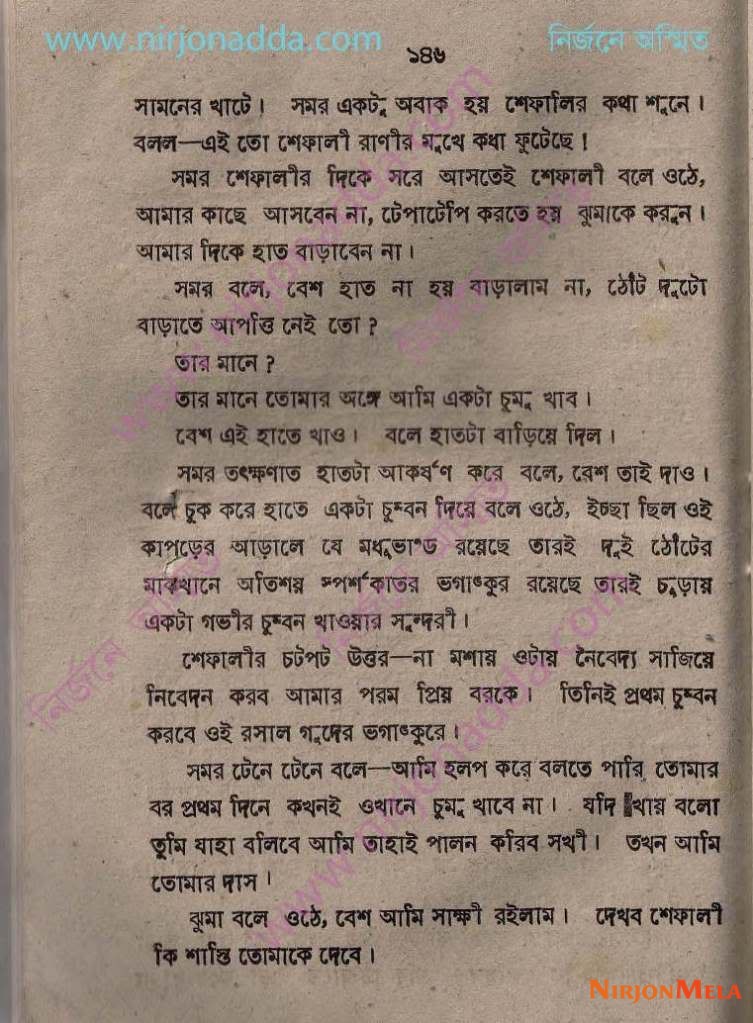 www.nirjonadda.com নির্জনে অস্মিত
১৪৬
সামনের খাটে। সমর একটু অবাক হয় শেফালির কথা শুনে।
বলল—এই তো শেফালী রাণীর মুখে কথা ফুটেছে!
সমর শেফালীর দিকে সরে আসতেই শেফালী বলে ওঠে,
আমার কাছে আসবেন না, টেপাটেপি করতে হয় ঝুমাকে করুন।
আমার দিকে হাত বাড়াবেন না।
সমর বলে, বেশ হাত না হয় বাড়ালাম না, ঠোঁট দুটো
বাড়াতে আপত্তি নেই তো?
তার মানে?
তার মানে তোমার অঙ্গে আমি একটা চুমু খাব।
বেশ এই হাতে খাও। বলে হাতটা বাড়িয়ে দিল।
সমর তৎক্ষণাত হাতটা আকর্ষণ করে বলে, বেশ তাই দাও।
বলে চুক করে হাতে একটা চুম্বন দিয়ে বলে ওঠে, ইচ্ছা ছিল ওই
কাপড়ের আড়ালে যে মধুভাণ্ড রয়েছে তারই দুই ঠোঁটের
মাঝখানে অতিশয় স্পর্শকাতর ভগাঙ্কুর রয়েছে তারই চূড়ায়
একটা গভীর চুম্বন খাওয়ার সুন্দরী।
শেফালীর চটপট উত্তর—না মশায় ওটায় নৈবেদ্য সাজিয়ে
নিবেদন করব আমার পরম প্রিয় বরকে। তিনিই প্রথম চুম্বন
করবে ওই রসাল গুদের ভগাঙ্কুরে।
সমর টেনে টেনে বলে—আমি হলপ করে বলতে পারি তোমার
বর প্রথম দিনে কখনই ওখানে চুমু খাবে না। যদি খায় বলো
তুমি যাহা বলিবে আমি তাহাই পালন করিব সখী। তখন আমি
তোমার দাস।
ঝুমা বলে ওঠে, বেশ আমি সাক্ষী রইলাম। দেখব শেফালী
কি শাস্তি তোমাকে দেবে।
NIRJONMELA